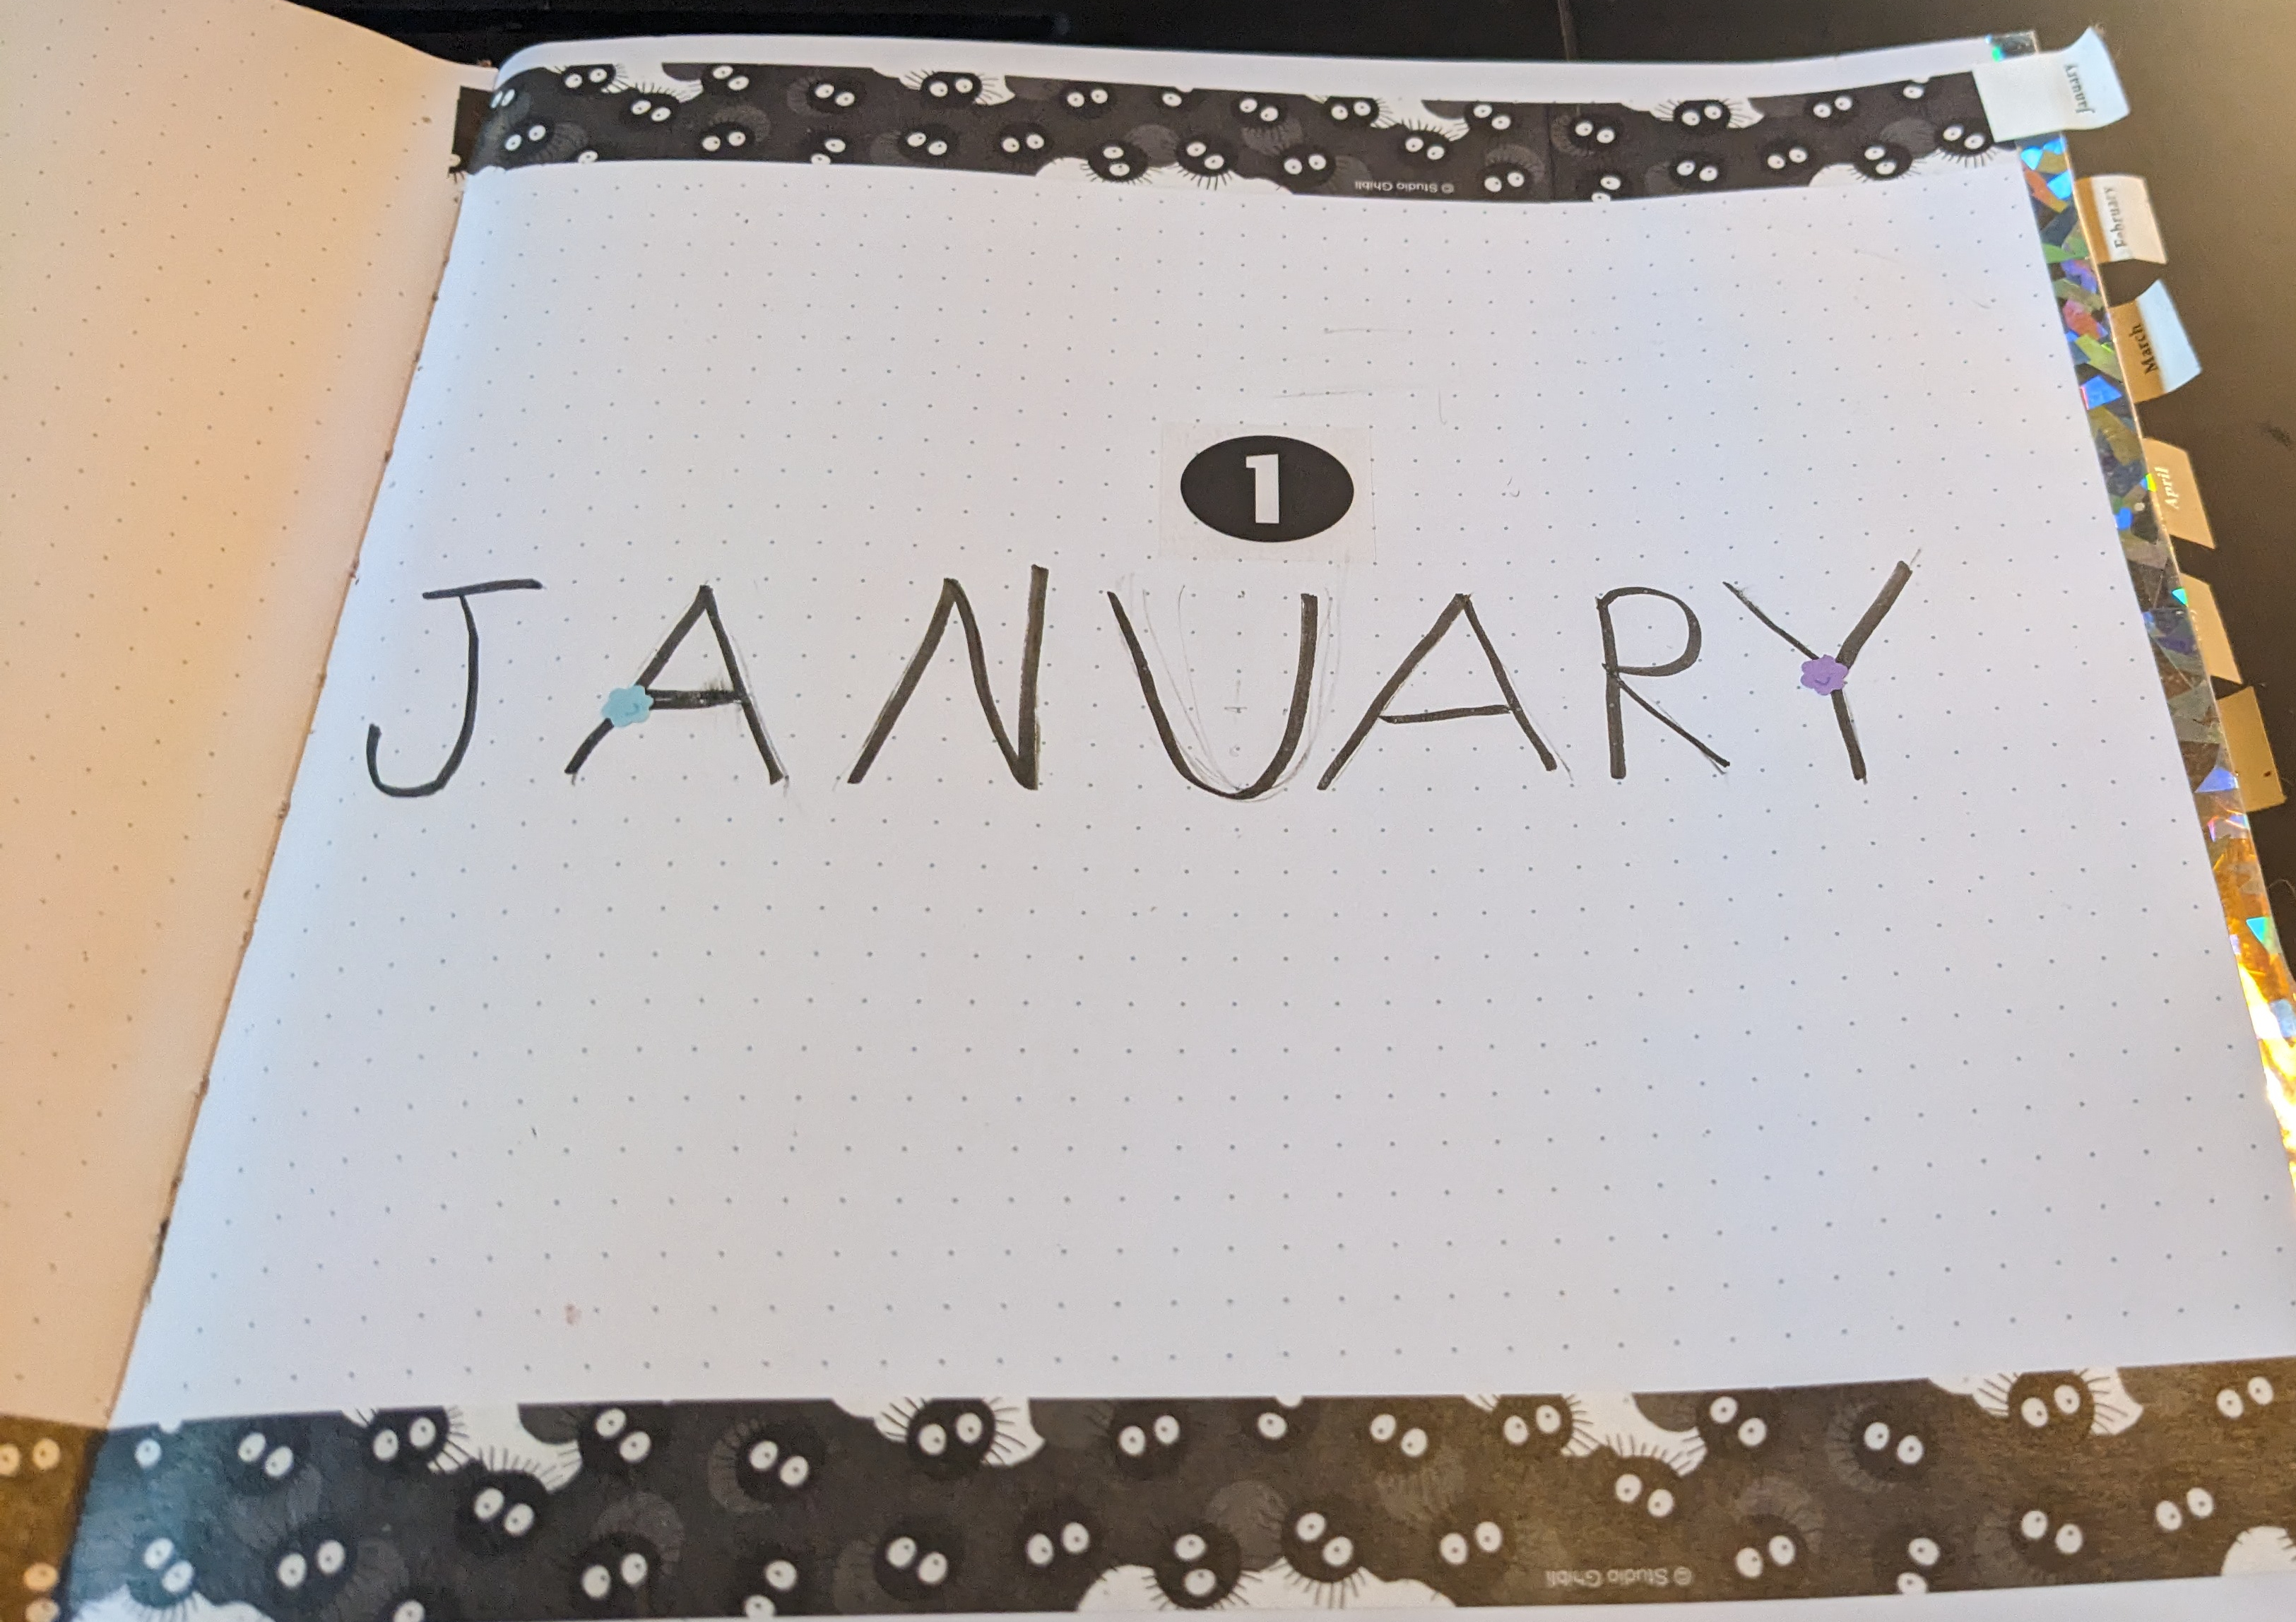 © Studio Ghibli
January
February
March
April
1
JANUARY
© Studio Ghibli